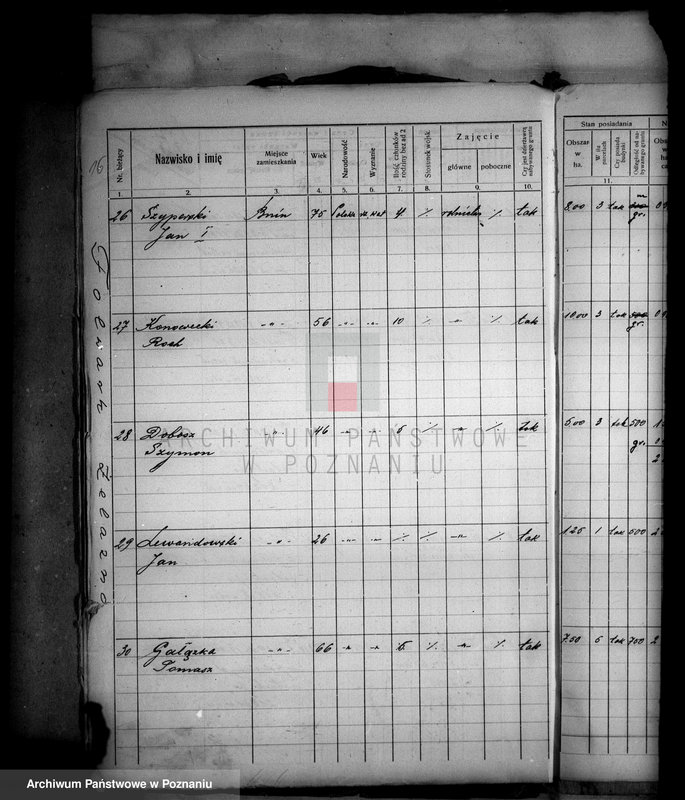 16
Folwark Żelazno
Nr. bieżący
Nazwisko i imię
Miejsce zamieszkania
Wiek
Narodowość
Wyznanie
Ilość członków rodziny bez ad 2
Stosunek wojsk.
Zajęcie
główne poboczne
Czy jest dzierżawcą nabywanego gruntu
Stan posiadania
Obszar w ha.
W ilu parcelach
Czy posiada budynki
Odległość od nabywanego gruntu
1. 2. 3. 4. 5. 6. 7. 8. 9. 10. 11.
26 Szyperski Bnin 75 Polska rz. kat 4 % rolnictwo % tak 8.00 3 tak
Jan I gr.
27 Konowecki -"- 56 -"- -"- 10 % -"- % tak 10.00 3 tak
Roch gr.
28 Dobosz -"- 46 -"- -"- 5 % -"- % tak 5.00 3 tak 500
Szymon gr.
29 Lewandowski -"- 26 -"- -"- % % -"- % tak 1.25 1 tak 500
Jan
30 Gałązka -"- 66 -"- -"- 5 % -"- % tak 7.50 5 tak 700
Tomasz
ARCHIWUM PAŃSTWOWE
W POZNANIU
Archiwum Państwowe w Poznaniu